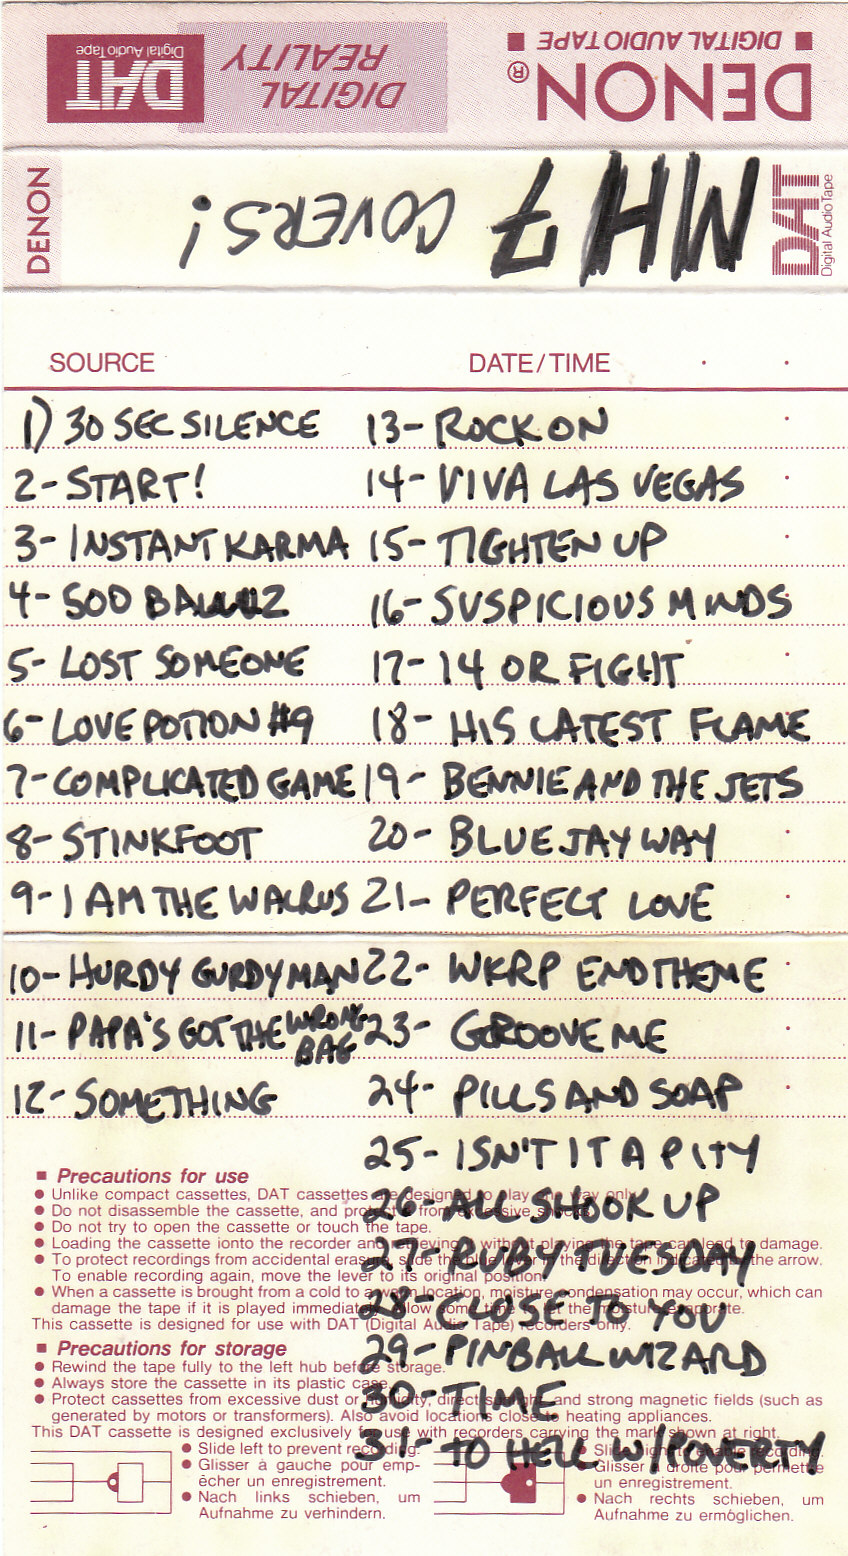 DENON®
DIGITAL AUDIO TAPE
DIGITAL
REALITY
DAT
Digital Audio Tape
DENON
MH 7
COVERS!
DAT
Digital Audio Tape
SOURCE
DATE/TIME
1) 30 SEC SILENCE
2- START!
3- INSTANT KARMA
4-
5- LOST SOMEONE
6- LOVE POTION #9
7- COMPLICATED GAME
8- STINKFOOT
9- I AM THE WALRUS
10- HURDY GURDY MAN
11- PAPA'S GOT THE WRONG
BAG
12- SOMETHING
13- ROCK ON
14- VIVA LAS VEGAS
15- TIGHTEN UP
16- SUSPICIOUS MINDS
17- 14 OR FIGHT
18- HIS LATEST FLAME
19- BENNIE AND THE JETS
20- BLUE JAY WAY
21- PERFECT LOVE
22- WKRP END THEME
23- GROOVE ME
24- PILLS AND SOAP
25- ISN'T IT A PITY
26- ALL SHOOK UP
27- RUBY TUESDAY
28- CLOSE TO YOU
29- PINBALL WIZARD
30- TIME
31- TO HELL W/ POVERTY
■ Precautions for use
● Unlike compact cassettes, DAT cassettes are designed to play one way only.
● Do not disassemble the cassette, and protect it from excessive shocks.
● Do not try to open the cassette or touch the tape.
● Loading the cassette ionto the recorder and retrieving it without playing the tape can lead to damage.
● To protect recordings from accidental erasure, slide the blue lever in the direction indicated by the arrow.
To enable recording again, move the lever to its original position.
● When a cassette is brought from a cold to a warm location, moisture condensation may occur, which can
damage the tape if it is played immediately. Allow some time to let the moisture evaporate.
This cassette is designed for use with DAT (Digital Audio Tape) recorders only.
■ Precautions for storage
● Rewind the tape fully to the left hub before storage.
● Always store the cassette in its plastic case.
● Protect cassettes from excessive dust or humidity, direct sunlight, and strong magnetic fields (such as
generated by motors or transformers). Also avoid locations close to heating appliances.
This DAT cassette is designed exclusively for use with recorders carrying the mark shown at right.
● Slide left to prevent recording.
● Glisser à gauche pour emp-
êcher un enregistrement.
● Nach links schieben, um
Aufnahme zu verhindern.
● Slide right to enable recording.
● Glisser à droite pour permettre
un enregistrement.
● Nach rechts schieben, um
Aufnahme zu ermöglichen.